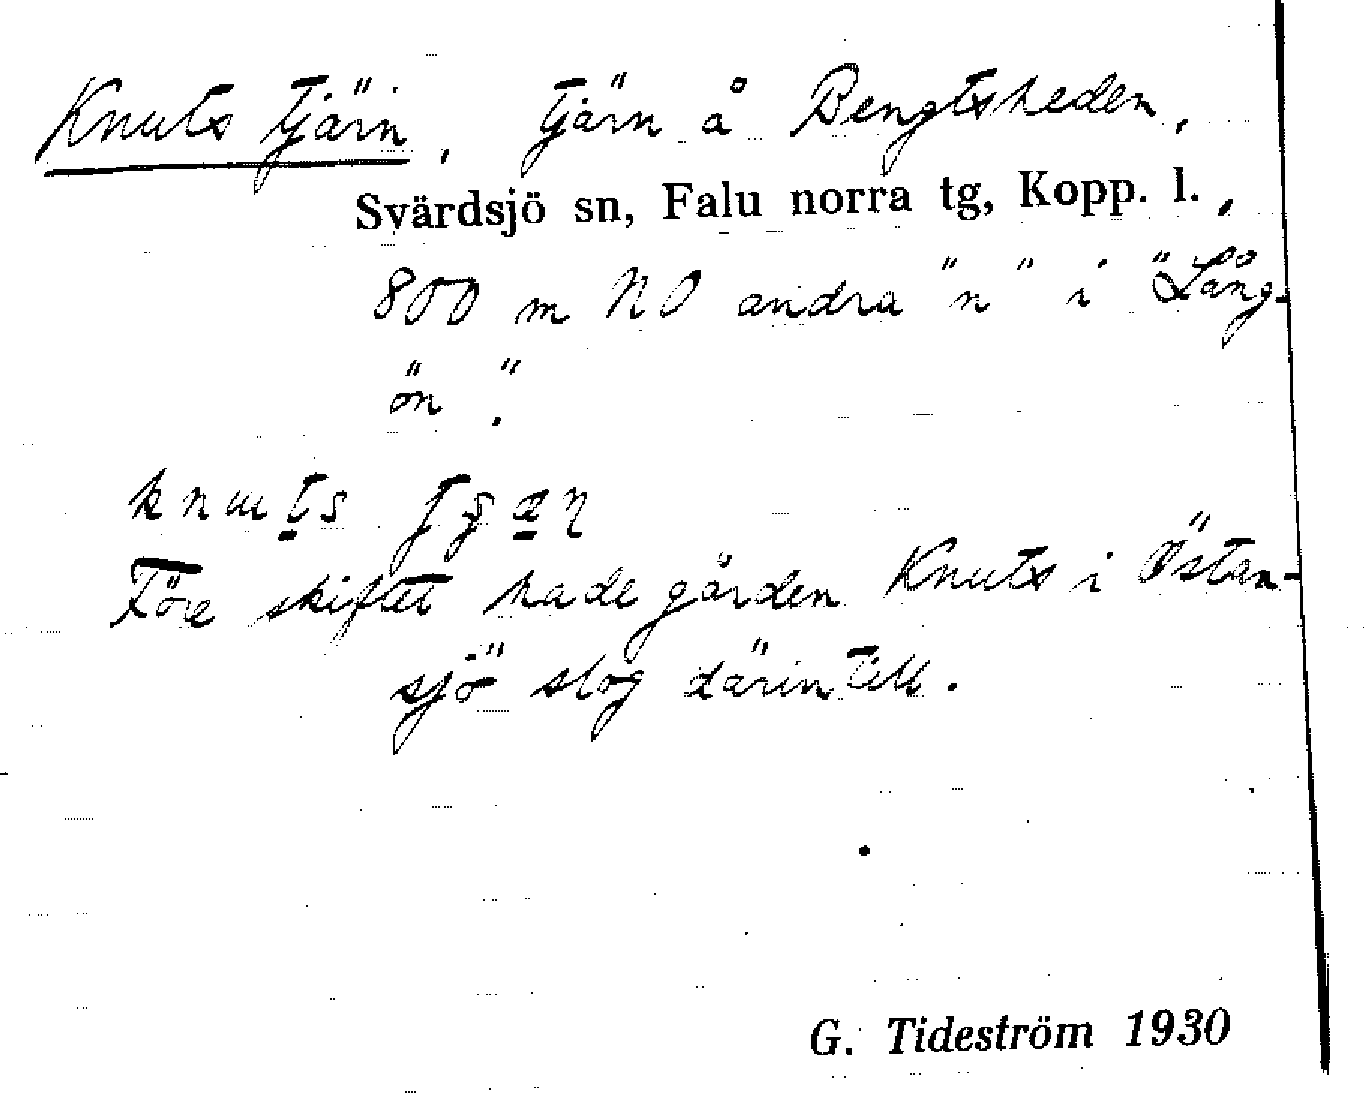 Knuts tjärn, tjärn å Bengtsheden,
Svärdsjö sn, Falu norra tg, Kopp. l.,
800 m NO andra "n" i "Lång-
ön".
Före skiftet hade gården Knuts i Östan-
sjö slog därintill.
G. Tideström 1930